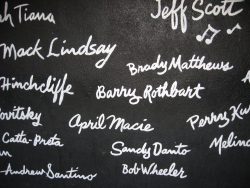 Tiana
Jeff Scott
Mack Lindsay
Brady Matthews
Hinchcliffe
Barry Rothbart
April Macie
Perry
Catta-Preta
Sandy Danto
Andrew Santino
Bob Wheeler